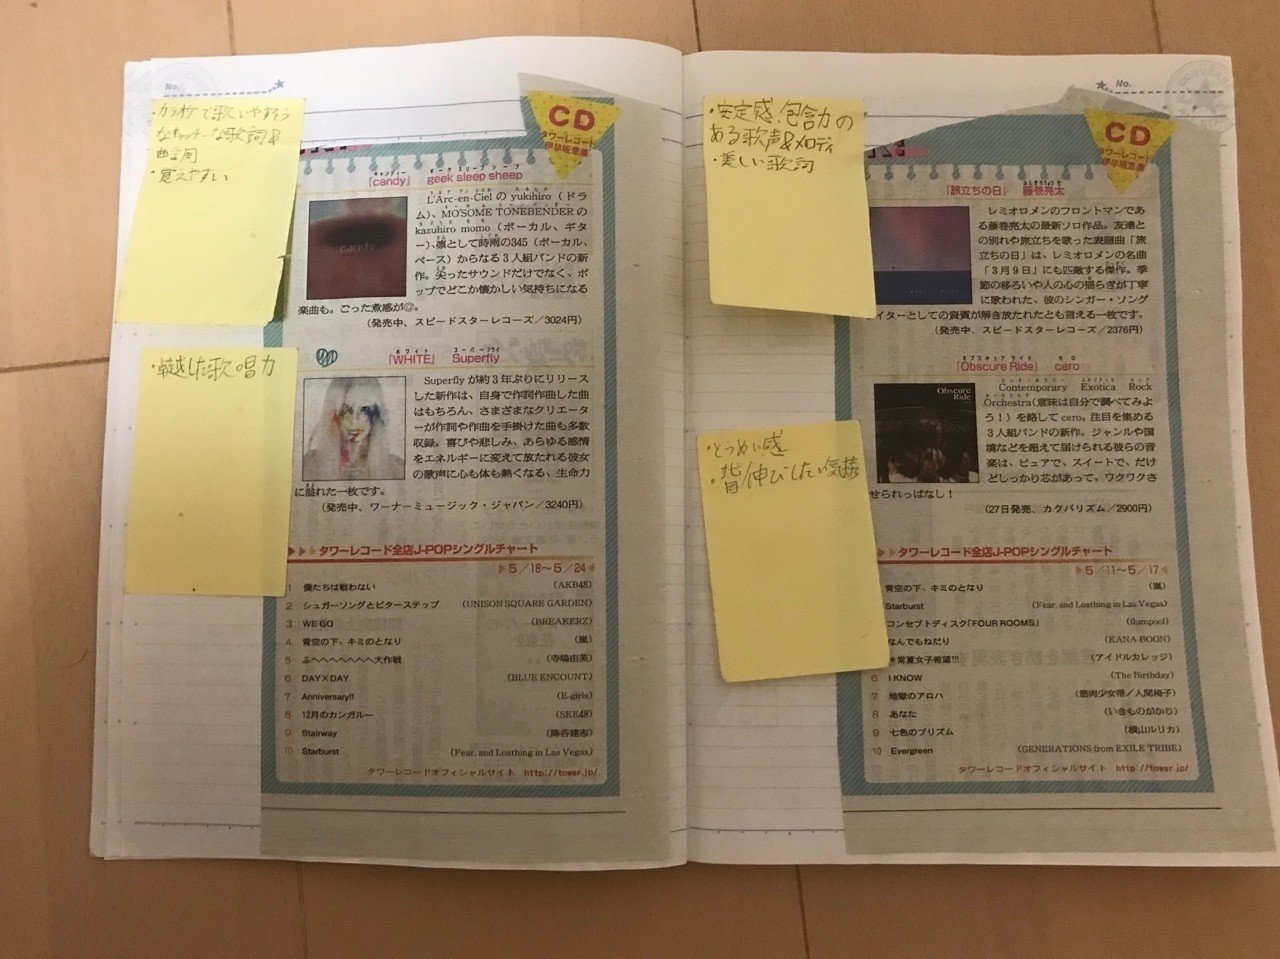 No.
・カラオケで歌いやすそう
なキャッチーな歌詞&
曲調
・覚えやすい
CD
タワーレコード
伊早坂恵美
キャンディー ギーク スリープ シープ
「candy」 geek sleep sheep
L'Arc-en-Cielの yukihiro（ドラ
ム）、MO'SOME TONEBENDERの
kazuhiro momo（ボーカル、ギタ
ー）、凛として時雨の345（ボーカル、
ベース）からなる3人組バンドの新
作。尖ったサウンドだけでなく、ポ
ップでどこか懐かしい気持ちになる
楽曲も。ごった煮感が◎。
（発売中、スピードスターレコーズ／3024円）
candy
・卓越した歌唱力
ホワイト スーパーフライ
「WHITE」 Superfly
Superflyが約3年ぶりにリリース
した新作は、自身で作詞作曲した曲
はもちろん、さまざまなクリエータ
ーが作詞や作曲を手掛けた曲も多数
収録。喜びや悲しみ、あらゆる感情
をエネルギーに変えて放たれる彼女
の歌声に心も体も熱くなる、生命力
に溢れた一枚です。
（発売中、ワーナーミュージック・ジャパン／3240円）
タワーレコード全店J-POPシングルチャート
5／18〜5／24
1 僕たちは戦わない （AKB48）
2 シュガーソングとビターステップ （UNISON SQUARE GARDEN）
3 WE GO （BREAKERZ）
4 青空の下、キミのとなり （嵐）
5 ふへへへへへへへ大作戦 （寺嶋由芙）
6 DAY×DAY （BLUE ENCOUNT）
7 Anniversary!! （E-girls）
8 12月のカンガルー （SKE48）
9 Stairway （降谷建志）
10 Starburst （Fear, and Loathing in Las Vegas）
タワーレコードオフィシャルサイト http://tower.jp/
No.
・安定感、包含力の
ある歌声&メロディ
・美しい歌詞
CD
タワーレコード
伊早坂恵美
「旅立ちの日」 藤巻亮太
レミオロメンのフロントマンであ
る藤巻亮太の最新ソロ作品。友達と
の別れや旅立ちを歌った表題曲「旅
立ちの日」は、レミオロメンの名曲
「3月9日」にも匹敵する傑作。季
節の移ろいや人の心の揺らぎが丁寧
に歌われた、彼のシンガー・ソング
イターとしての資質が解き放たれたとも言える一枚です。
（発売中、スピードスターレコーズ／2376円）
・とうめい感
・背伸びしたい気持
オブスキュア ライド セロ
「Obscure Ride」 cero
Obscure
Ride
コンテンポラリー エキゾチカ ロック
Contemporary Exotica Rock
オーケストラ
Orchestra（意味は自分で調べてみよ
う！）を略してcero。注目を集める
3人組バンドの新作。ジャンルや国
境などを超えて届けられる彼らの音
楽は、ピュアで、スイートで、だけ
どしっかり芯があって、ワクワクさ
せられっぱなし！
（27日発売、カクバリズム／2900円）
タワーレコード全店J-POPシングルチャート
5／11〜5／17
青空の下、キミのとなり （嵐）
Starburst （Fear, and Loathing in Las Vegas）
コンセプトディスク「FOUR ROOMS」 （flumpool）
なんでもねだり （KANA-BOON）
常夏女子希望!!! （アイドルカレッジ）
6 I KNOW （The Birthday）
7 地獄のアロハ （筋肉少女帯／人間椅子）
8 あなた （いきものがかり）
9 七色のプリズム （横山ルリカ）
10 Evergreen （GENERATIONS from EXILE TRIBE）
タワーレコードオフィシャルサイト http://tower.jp/